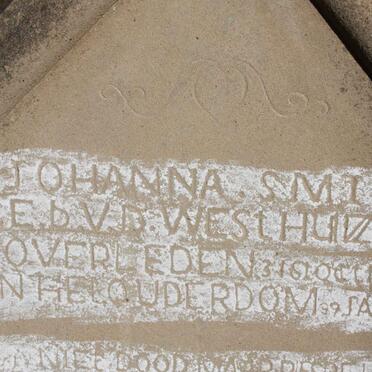 JOHANNA SMI
E b V.D. WEStHUIZ
OVERLEDEN 31610CT
N HE OUDERDOM 97 JA
NIET DOOD MAAR